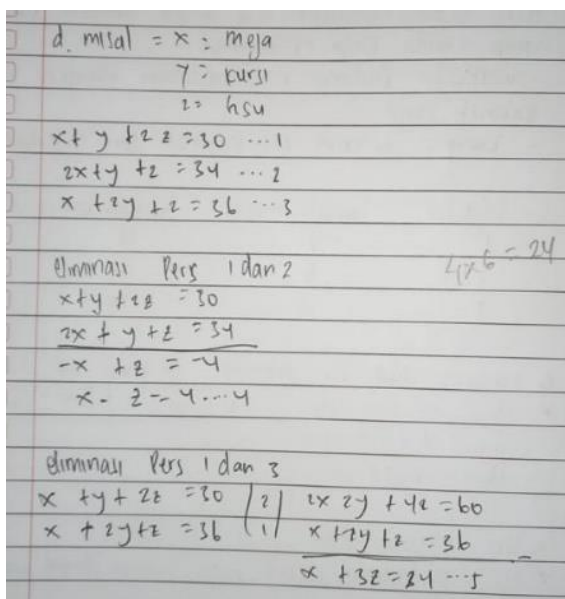 d. misal = x = meja
y = kursi
z = hsu
x + y + 2z = 30 ... 1
2x + y + z = 34 ... 2
x + 2y + z = 36 ... 3
4x6 = 24
eliminasi Pers 1 dan 2
x + y + 2z = 30
2x + y + z = 34
-x + z = -4
x - z = 4 .... 4
eliminasi Pers 1 dan 3
x + y + 2z = 30 | 2 | 2x 2y + 4z = 60
x + 2y + z = 36 | 1 | x + 2y + z = 36 -
x + 3z = 24 ... 5